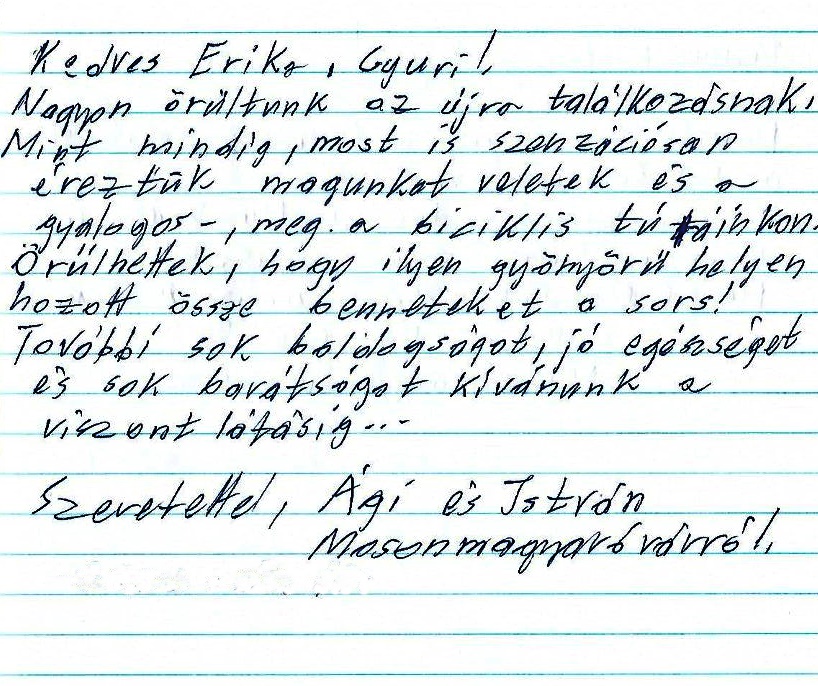 Kedves Erika, Gyuri!
Nagyon örültünk az újra találkozásnak.
Mint mindig, most is szenzációsan
éreztük magunkat veletek és a
gyalogos-, meg a biciklis túráinkon.
Örülhettek, hogy ilyen gyönyörű helyen
hozott össze benneteket a sors!
További sok boldogságot, jó egészséget
és sok barátságot kívánunk a
viszont látásig...
Szeretettel, Ági és István
Mosonmagyaróvárról.